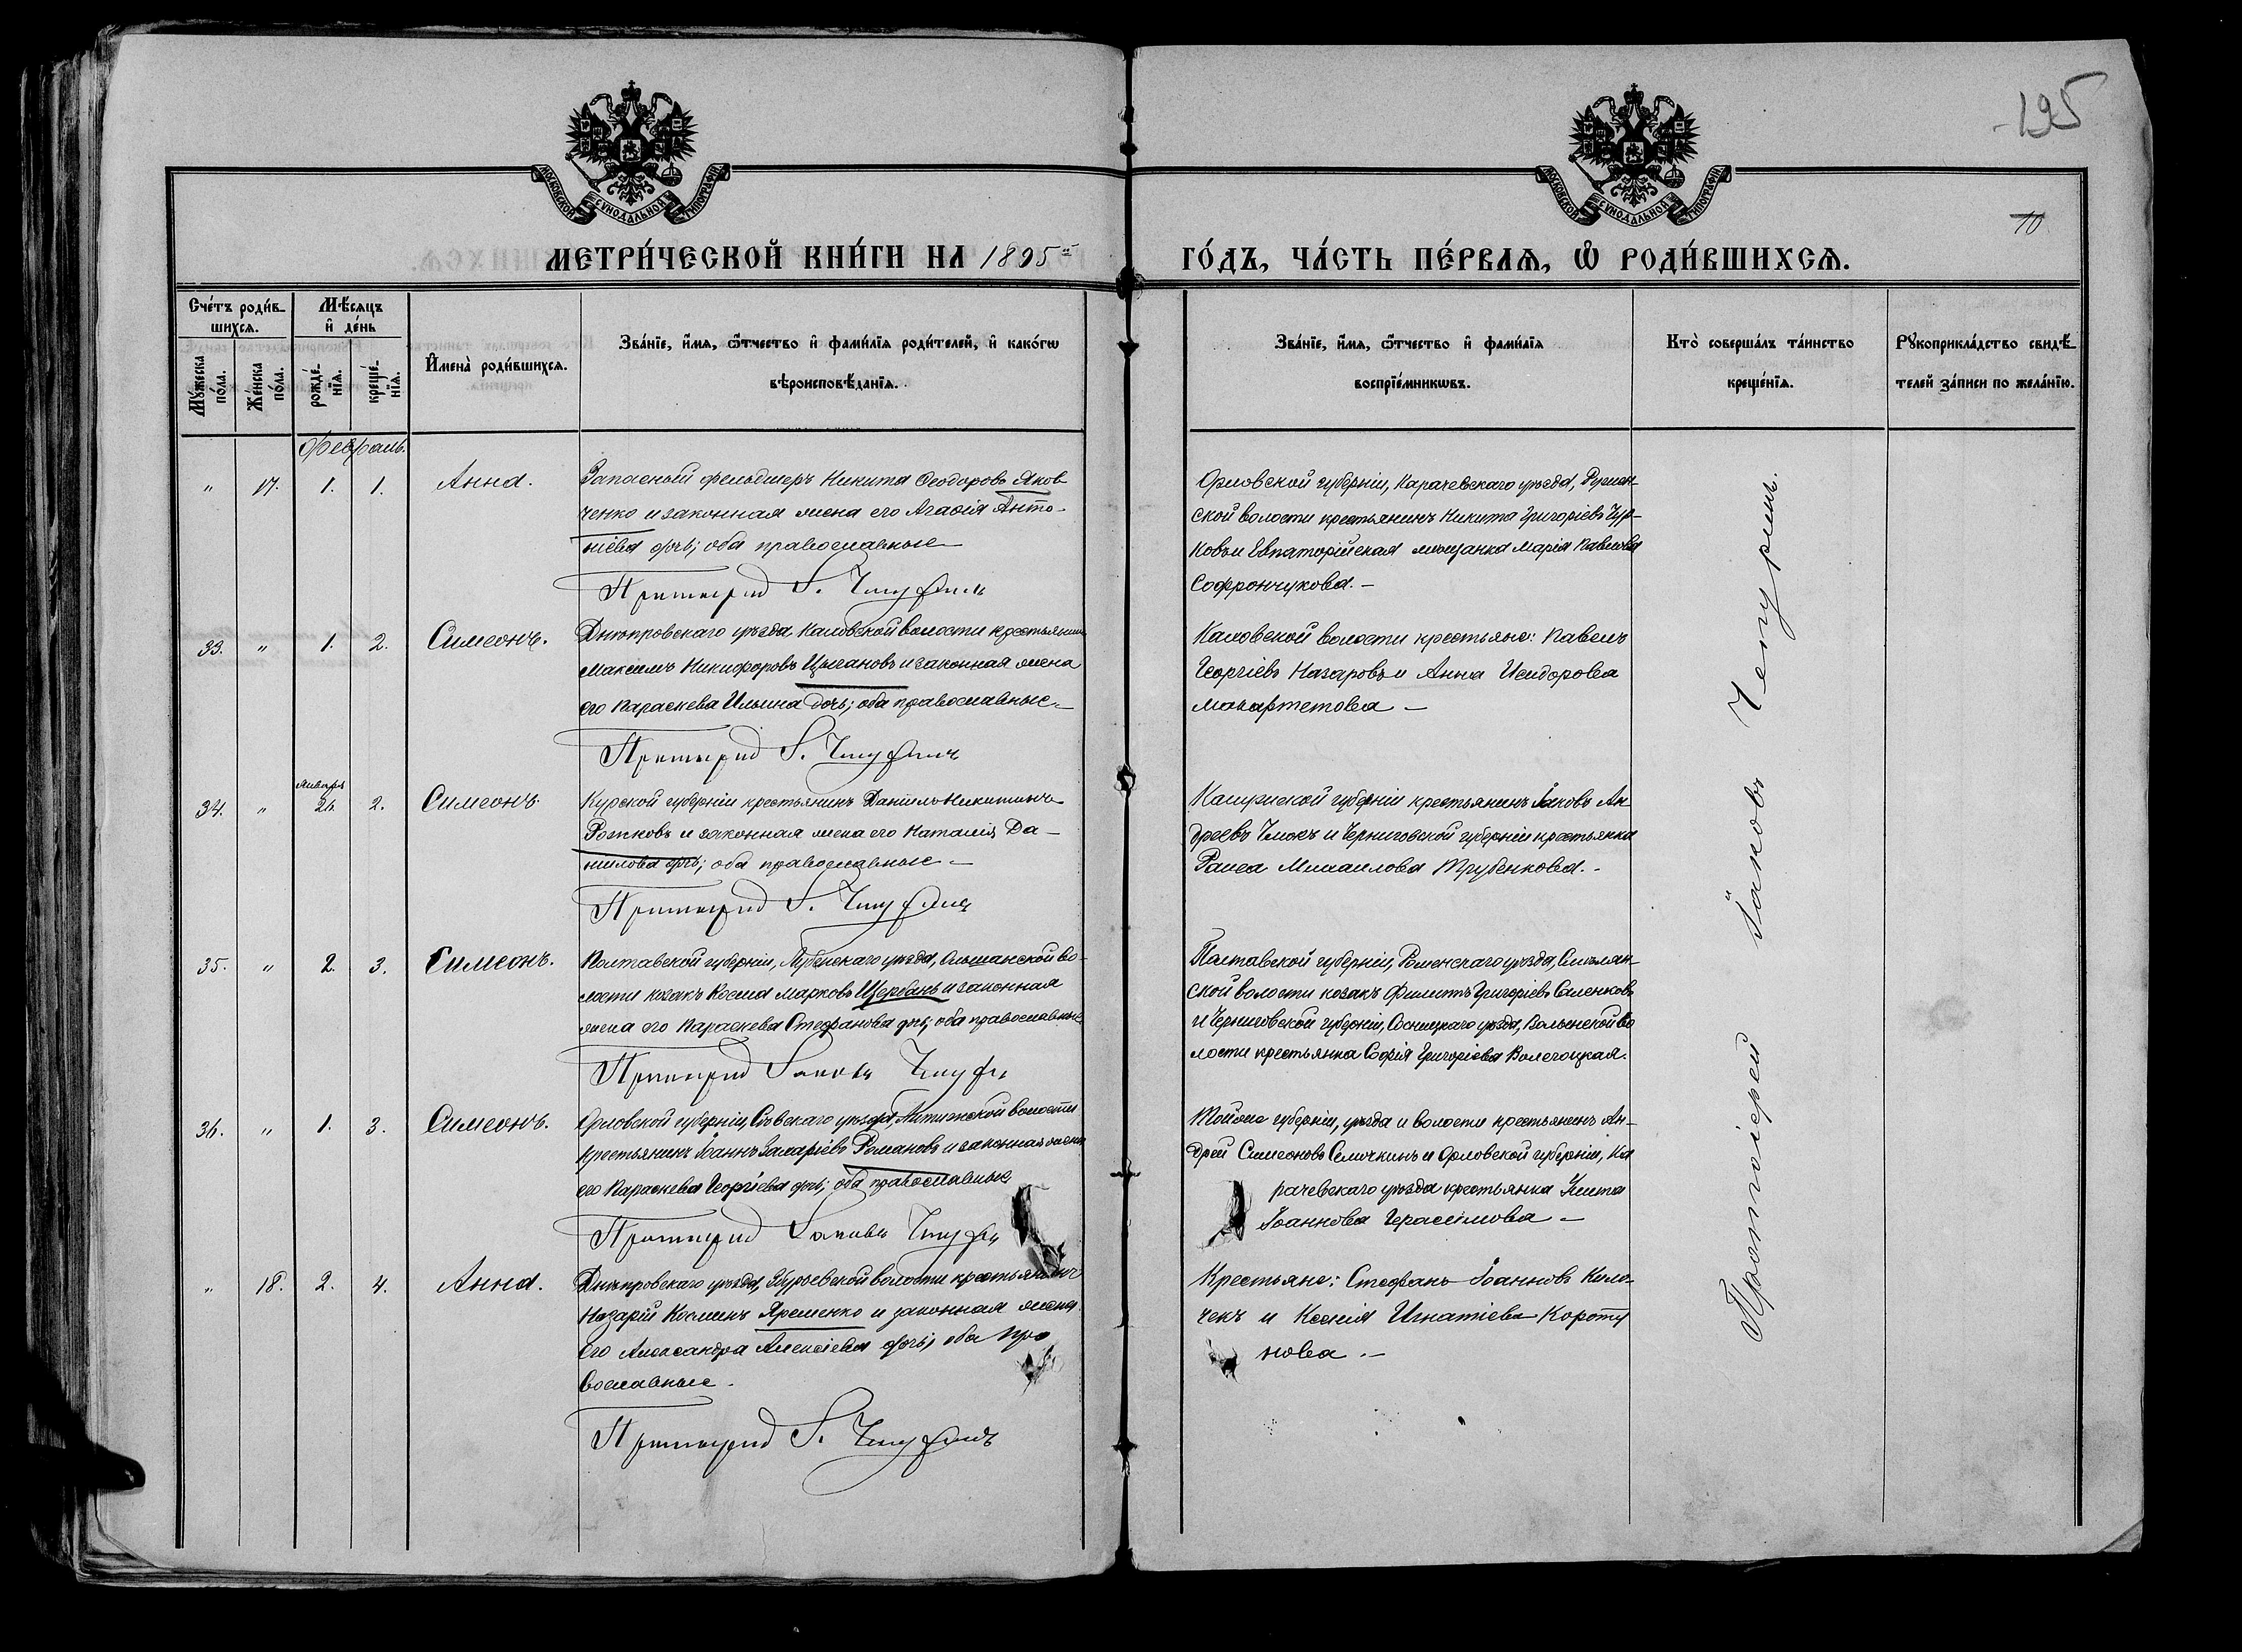 195
10
МОСКОВСКОЙ СѴНОДАЛЬНОЙ ТИПОГРАФІИ
МОСКОВСКОЙ СѴНОДАЛЬНОЙ ТИПОГРАФІИ
МЕТРИ́ЧЕСКОЙ КНИ́ГИ НА 1895й
ГО́ДЪ, ЧА́СТЬ ПЕ́РВАѦ, Ѡ҆ РОДИ́ВШИХСѦ.
Сче́тъ роди́в-
шихсѧ.
Мꙋ́жеска по́ла.
Же́нска по́ла.
Мѣ́сѧцъ
и҆ де́нь
рожде́-
нїѧ.
креще́-
нїѧ.
И҆мена̀ роди́вшихсѧ.
Зва́нїе, и҆́мѧ, ѻ҆́тчество и҆ фами́лїѧ роди́телей, и҆ како́гѡ
вѣроисповѣ́данїѧ.
Зва́нїе, и҆́мѧ, ѻ҆́тчество и҆ фами́лїѧ
воспрїе́мникѡвъ.
Кто̀ соверша́лъ та́инство
креще́нїѧ.
Рꙋкоприкла́дство свидѣ́-
телей за́писи по жела́нїю.
Февраль.
" 17. 1. 1. Анна.
Запасный фельдшеръ Никита Ѳеодоровъ Яков-
ченко и законная жена его Агаѳія Анто-
ніева дочь; оба православные
Протоіерей І. Чепуринъ
Орловской губерніи, Карачевскаго уѣзда,
ской волости крестьянинъ Никита Григоріевъ Чур-
ковъ и Евпаторійская мѣщанка Марія Павлова
Софрончукова. –
33. " 1. 2. Симеонъ.
Днѣпровскаго уѣзда Каховской волости крестьянинъ
Максимъ Никифоровъ Цыгановъ и законная жена
его Параскева Ильина дочь; оба православные. –
Протоіерей І. Чепуринъ
Каховской волости крестьяне: Павелъ
Георгіевъ Назаровъ и Анна Исидорова
–
январь
34. " 26. 2. Симеонъ.
Курской губерніи крестьянинъ Даніилъ Никитинъ
Рожновъ и законная жена его Наталія Да-
ніилова дочь; оба православные –
Протоіерей І. Чепуринъ
губерніи крестьянинъ Іаковъ Ан-
дреевъ и Черниговской губерніи крестьянка
Раиса Михаилова Трубенкова. -
35. " 2. 3. Симеонъ.
Полтавской губерніи, Лубенскаго уѣзда, Ольшанской во-
лости козакъ Косма Марковъ Щербань и законная
жена его Параскева Стефанова дочь; оба православные
Протоіерей Іаковъ Чепуринъ
Полтавской губерніи, Роменскаго уѣзда, Смѣлян-
ской волости козакъ Филиппъ Григоріевъ Саленковъ
и Черниговской губерніи, Сосницкаго уѣзда, Волынской во
лости крестьянка Софія Григоріева
36. " 1. 3. Симеонъ.
Орловской губерніи, Сѣвскаго уѣзда, Литижской волости
крестьянинъ Іоаннъ Захаріевъ Романовъ и законная жена
его Параскева Георгіева дочь; оба православные
Протоіерей Іаковъ Чепуринъ
Той же губерніи, уѣзда и волости крестьянинъ Ан-
дрей Симеоновъ Семочкинъ и Орловской губерніи, Ка
рачевскаго уѣзда крестьянка
Іоаннова Герасимова –
" 18. 2. 4. Анна.
Днѣпровскаго уѣзда, Збурьевской волости крестьянинъ
Назарій Косминъ Яременко и законная жена
его Александра Алексіева дочь; оба пра
вославные.
Протоіерей І. Чепуринъ
Крестьяне: Стефанъ Іоанновъ Коло-
чекъ и Ксенія Игнатіева Короту
нова. –
Протоіерей Іаковъ Чепуринъ.